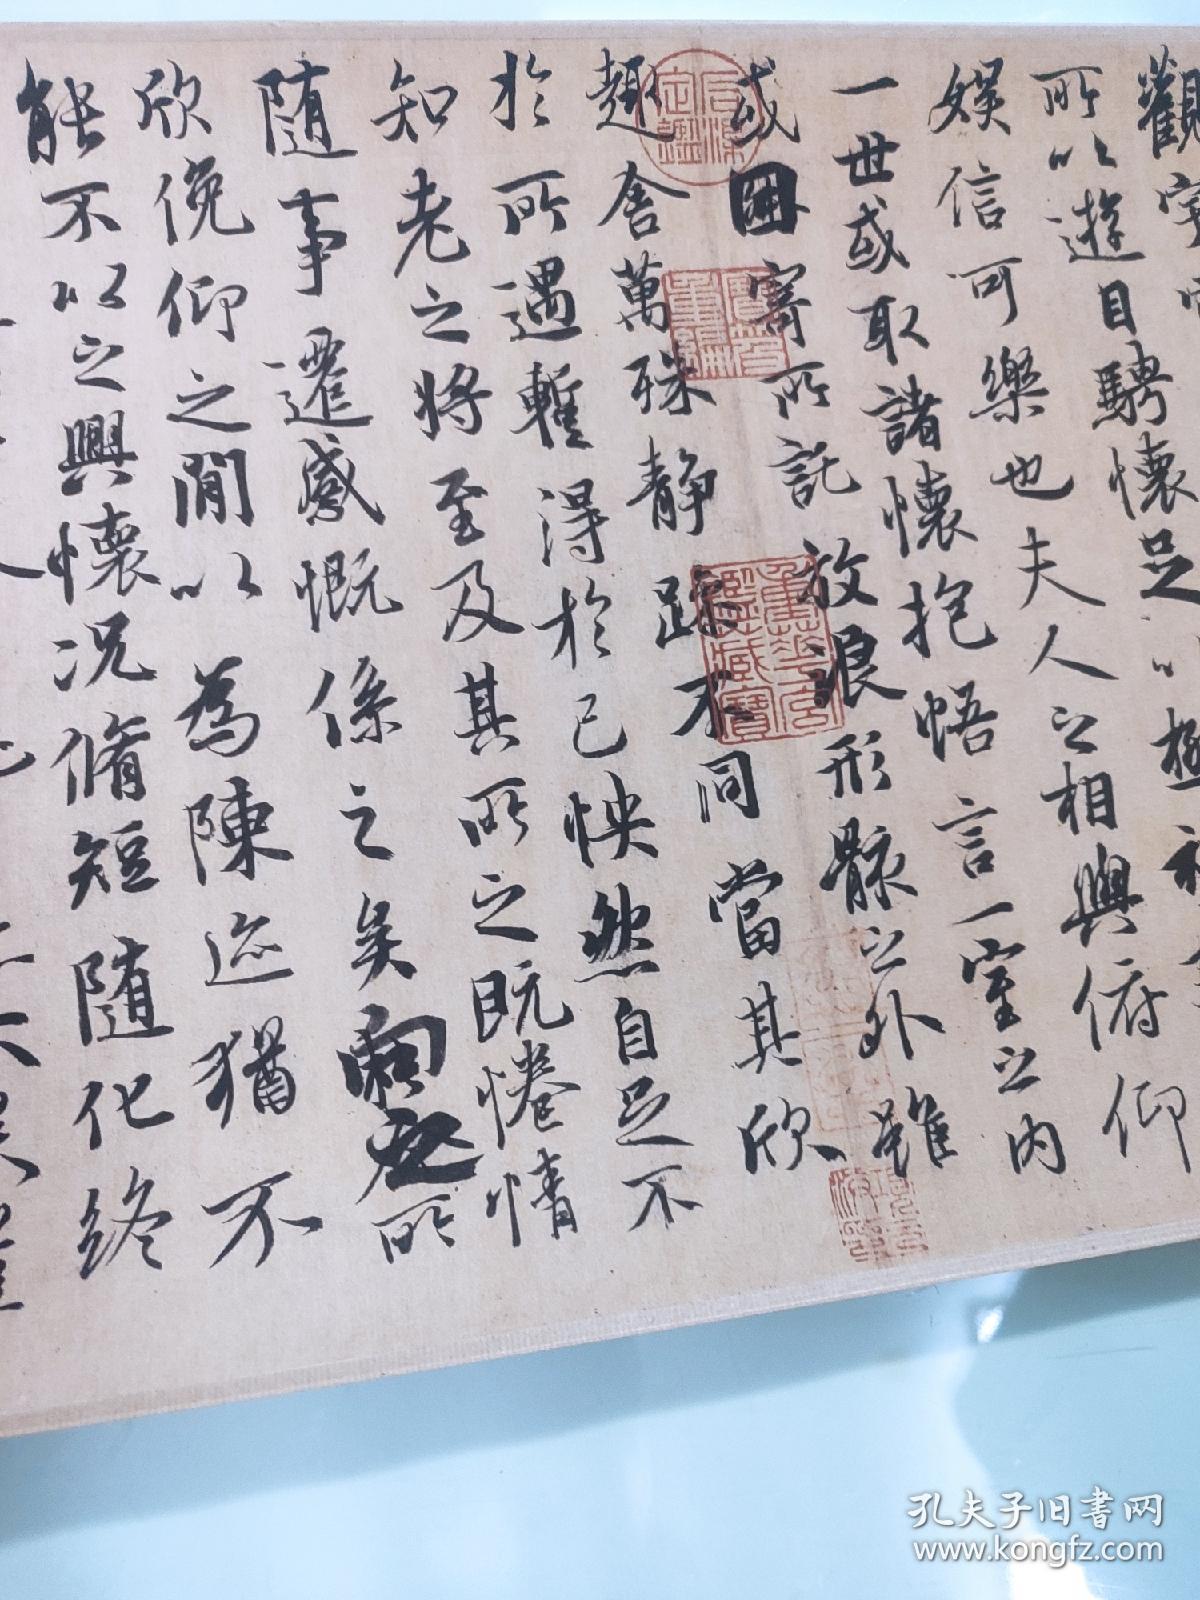 觀宇
所以遊目騁懷足以極視
娛信可樂也夫人之相與俯仰
一世或取諸懷抱悟言一室之內
或因寄所託放浪形骸之外雖
趣舍萬殊静躁不同當其欣
於所遇蹔得於己怏然自足不
知老之將至及其所之既惓情
随事遷感慨係之矣向之所
欣俛仰之閒以為陳迹猶不
能不以之興懷況脩短随化終
孔夫子旧書网
www.kongfz.com